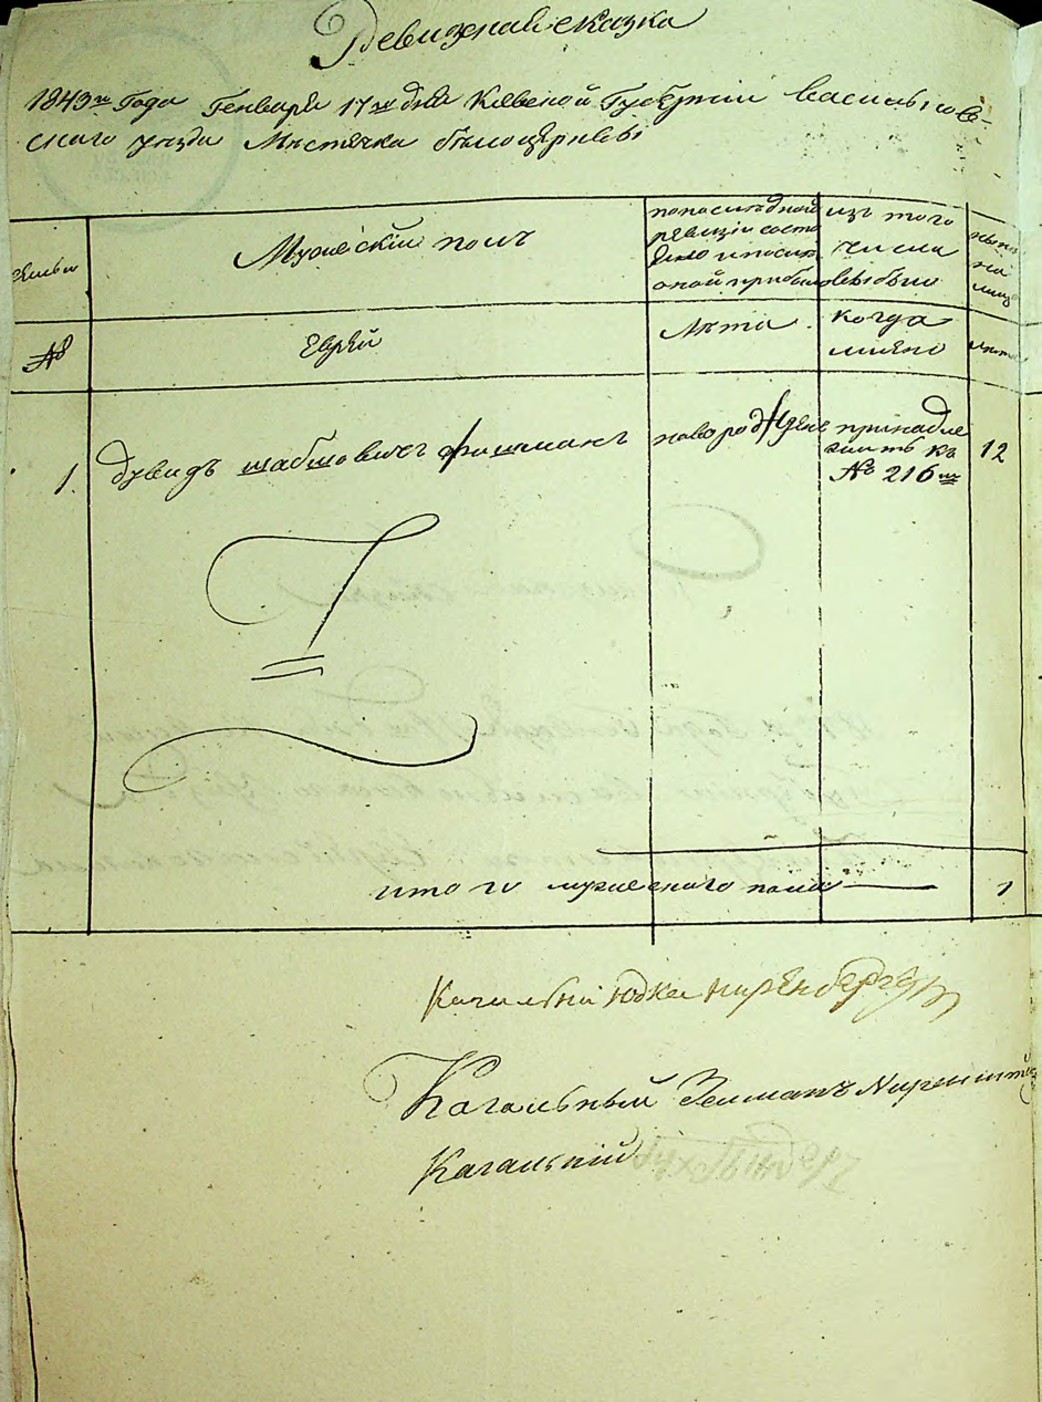 Ревизская сказка
1843го Года Генваря 17го дня Киевской Губернии василькове-
скаго уезда Местечка белоцеркви
Мужескiй полъ
по последной
ревизiи состо
яло и после
оной прибыло
изъ того
числа
выбыло
ныне
на
лицо
№
Еврей
Лета
когда
имяно
лета
1.
дувидъ шабшовичъ фишманъ
новорожден
принадле
жить къ
№ 216му
12
итого мужескаго пола
1
Кагальный Юдка
Кагальный Зелманъ
Кагальнiй